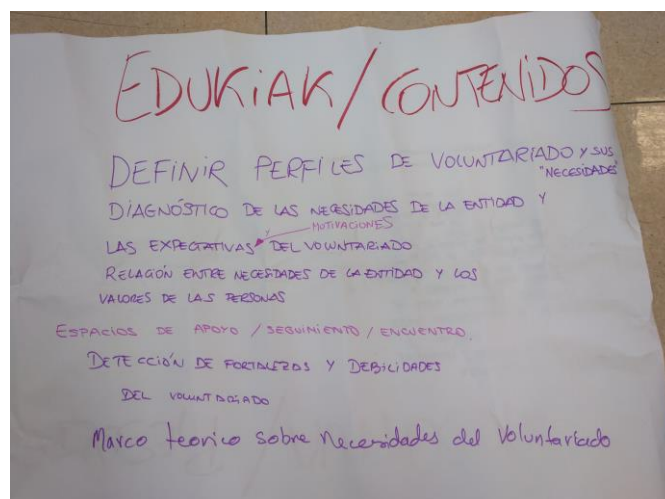 EDUKiAK / CONTENiDOS
DEFINIR PERFILES DE VOLUNTARIADO Y SUS
"NECESIDADES"
DIAGNÓSTICO DE LAS NECESIDADES DE LA ENTIDAD Y
Y MOTIVACIONES
LAS EXPECTATIVAS DEL VOLUNTARIADO
RELACIÓN ENTRE NECESIDADES DE LA ENTIDAD Y LOS
VALORES DE LAS PERSONAS
ESPACIOS DE APOYO / SEGUIMIENTO / ENCUENTRO.
DETECCIÓN DE FORTALEZAS Y DEBILIDADES
DEL VOLUNTARIADO
Marco teorico sobre Necesidades del Voluntariado